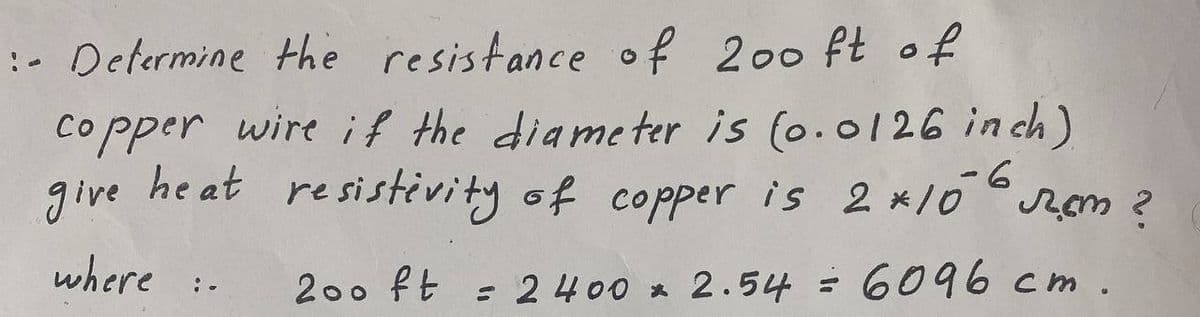 :- Determine the resistance of 200 ft of
copper wire if the diameter is (0.0126 inch)
give heat resistivity of copper is 2 *10⁻⁶ Ωcm ?
where :- 200 ft = 2400 * 2.54 = 6096 cm .